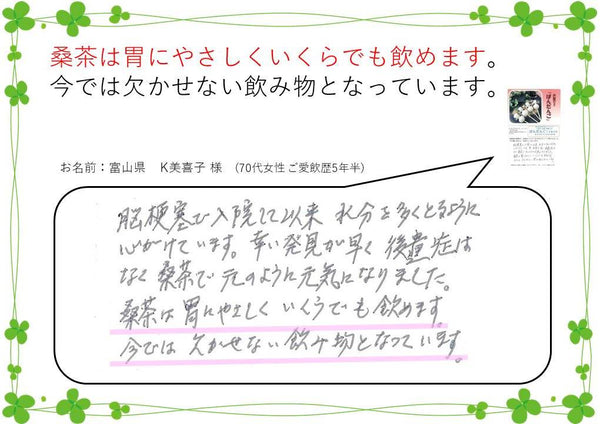 桑茶は胃にやさしくいくらでも飲めます。
今では欠かせない飲み物となっています。
お名前：富山県　K美喜子 様　(70代女性 ご愛飲歴5年半)
脳梗塞で入院して以来 水分を多くとるように
心がけています。幸い発見が早く 後遺症は
なく 桑茶で元のように元気になりました。
桑茶は 胃にやさしく いくらでも飲めます。
今では 欠かせない飲み物となっています。